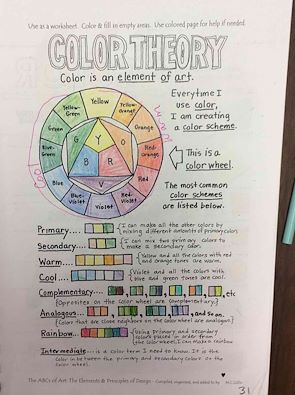 Use as a worksheet. Color & fill in empty areas. Use colored page for help if needed.
COLOR THEORY
Color is an element of art.
Everytime I
use color,
I am creating
a color scheme.
This is a
color wheel.
The most common
color schemes
are listed below.
Yellow
Yellow-Orange
Orange
Red-Orange
Red
Red-Violet
Violet
Blue-Violet
Blue
Blue-Green
Green
Yellow-Green
Y
O
R
V
B
G
Warm
Cool
Primary.... (I can make all the other colors by
mixing different amounts of primary colors)
Secondary.... (I can mix two primary colors to
make a secondary color.
Warm.... (Yellow and all the colors with red
and orange tones are warm.
Cool.... (Violet and all the colors with
blue and green tones are cool.
Complementary.... , etc
(Opposites on the color wheel are complementary.)
Analogous.... , and so on.
(Colors that are close neighbors on the color wheel are analogous.)
Rainbow... (Using primary and secondary
colors placed in order from
the color wheel, I can make a rainbow
Intermediate.... is a color term I need to know. It is the
color in between the primary and secondary colors on the
color wheel.
The ABCs of Art: The Elements & Principles of Design - Compiled, organized, and added to by
31